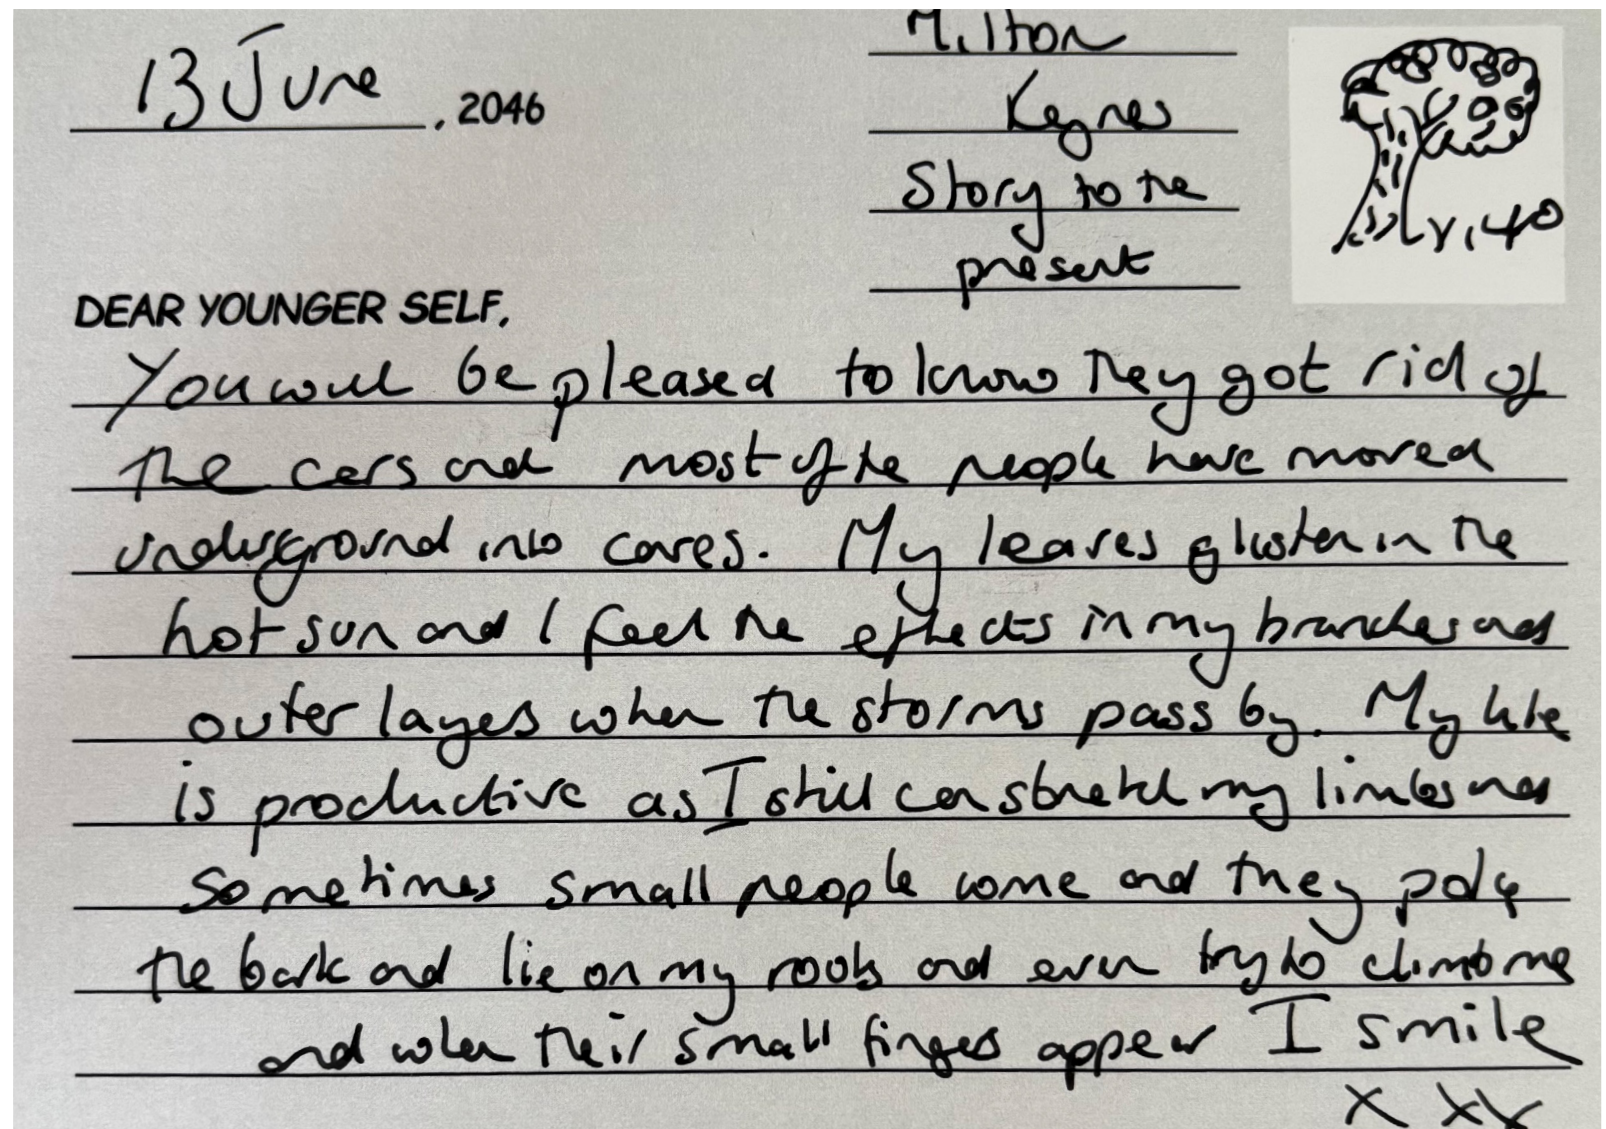 13 June, 2046
Milton
Keynes
Story to the
present
DEAR YOUNGER SELF,
You will be pleased to know they got rid of
the cars and most of the people have moved
underground into caves. My leaves glisten in the
hot sun and I feel the effects in my branches and
outer layers when the storms pass by. My life
is productive as I still can stretch my limbs and
sometimes small people come and they poke
the bark and lie on my roots and even try to climb me
and when their small fingers appear I smile
X XX